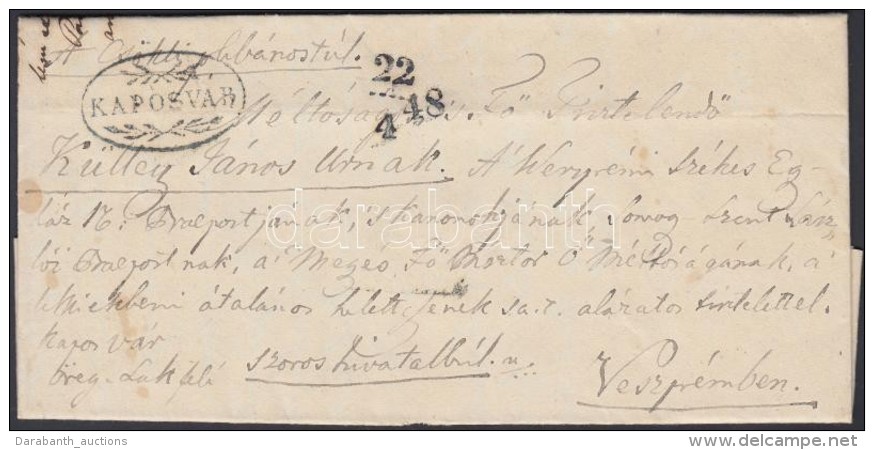 A Csökli plbánostúl.
KAPOSVÁR
22
4 48
Méltóságos Fő Tisztelendő
Küllei János Urnak. A' Weszprémi székes Eg-
ház N: Praepostjának, 's kanonokjának Somog Szent Lász-
lói Praepostnak, a' Megés Fő Pásztor Ő Méltóságának, a'
lelkiekbeni átalános helettesének sa.t. alázatos tisztelettel.
Kaposvár
Öreg-Lak felé szoros hivatalbúl.
Veszprémben.
darabanth
Darabanth_auctions